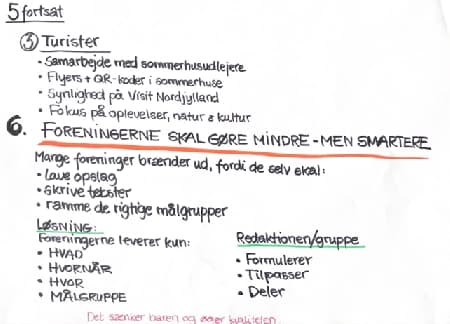 5 fortsat
③ Turister
• Samarbejde med sommerhusudlejere
• Flyers + QR-koder i sommerhuse
• Synlighed på Visit Nordjylland
• Fokus på oplevelser, natur & kultur
6. FORENINGERNE SKAL GØRE MINDRE - MEN SMARTERE
Mange foreninger brænder ud, fordi de selv skal:
• lave opslag
• skrive tekster
• ramme de rigtige målgrupper
LØSNING:
Foreningerne leverer kun:
• HVAD
• HVORNÅR
• HVOR
• MÅLGRUPPE
Redaktionen/gruppe
• Formulerer
• Tilpasser
• Deler
Det sænker baren og øger kvaliteten